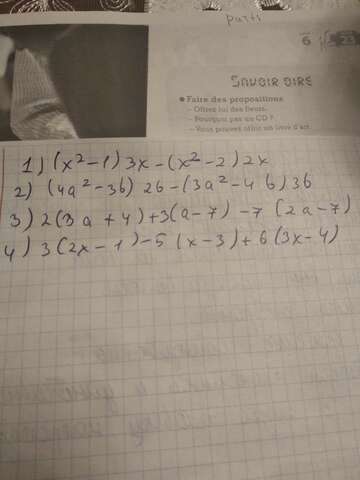 parti
6
23
SAVOIR DIRE
● Faire des propositions
– Offrez lui des fleurs.
– Pourquoi pas un CD ?
– Vous pouvez offrir un livre d'art.
1) (x²-1)3x-(x²-2)2x
2) (4a²-3b)2b-(3a²-4b)3b
3) 2(3a+4)+3(a-7)-7(2a-7)
4) 3(2x-1)-5(x-3)+6(3x-4)